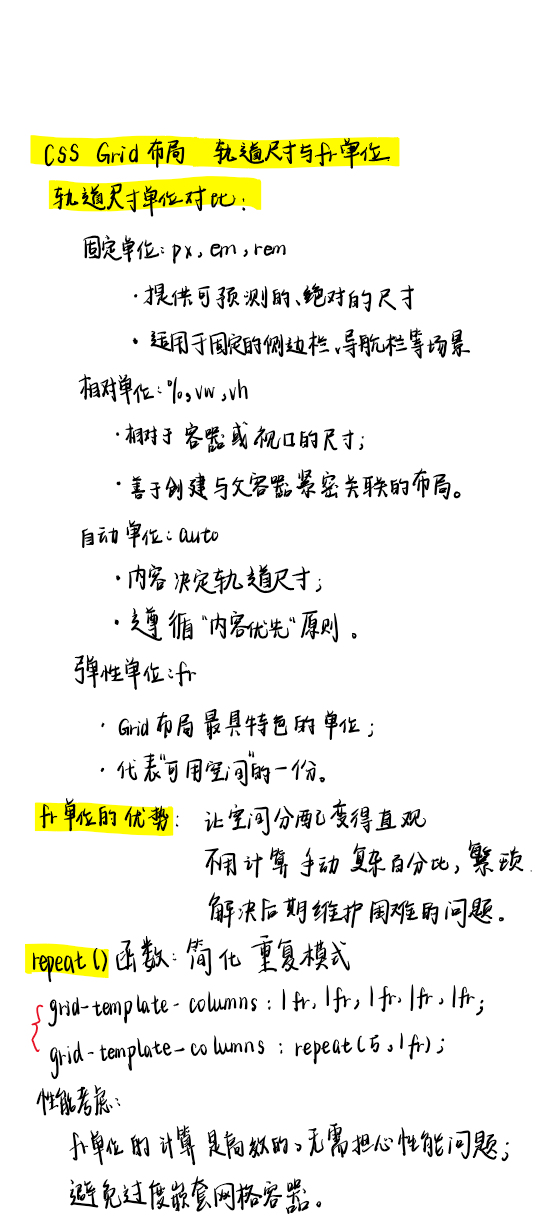 CSS Grid布局 轨道尺寸与fr单位
轨道尺寸单位对比：
固定单位：px，em，rem
·提供可预测的、绝对的尺寸
·适用于固定的侧边栏、导航栏等场景
相对单位：%，vw，vh
·相对于容器或视口的尺寸；
·善于创建与父容器紧密关联的布局。
自动单位：auto
·内容决定轨道尺寸；
·遵循“内容优先”原则。
弹性单位：fr
·Grid布局最具特色的单位；
·代表“可用空间”的一份。
fr单位的优势：让空间分配变得直观
不用计算手动复杂百分比，繁琐
解决后期维护困难的问题。
repeat()函数：简化重复模式
grid-template-columns：1fr，1fr，1fr，1fr，1fr；
grid-template-columns：repeat(5，1fr)；
性能考虑：
fr单位的计算是高效的，无需担心性能问题；
避免过度嵌套网格容器。